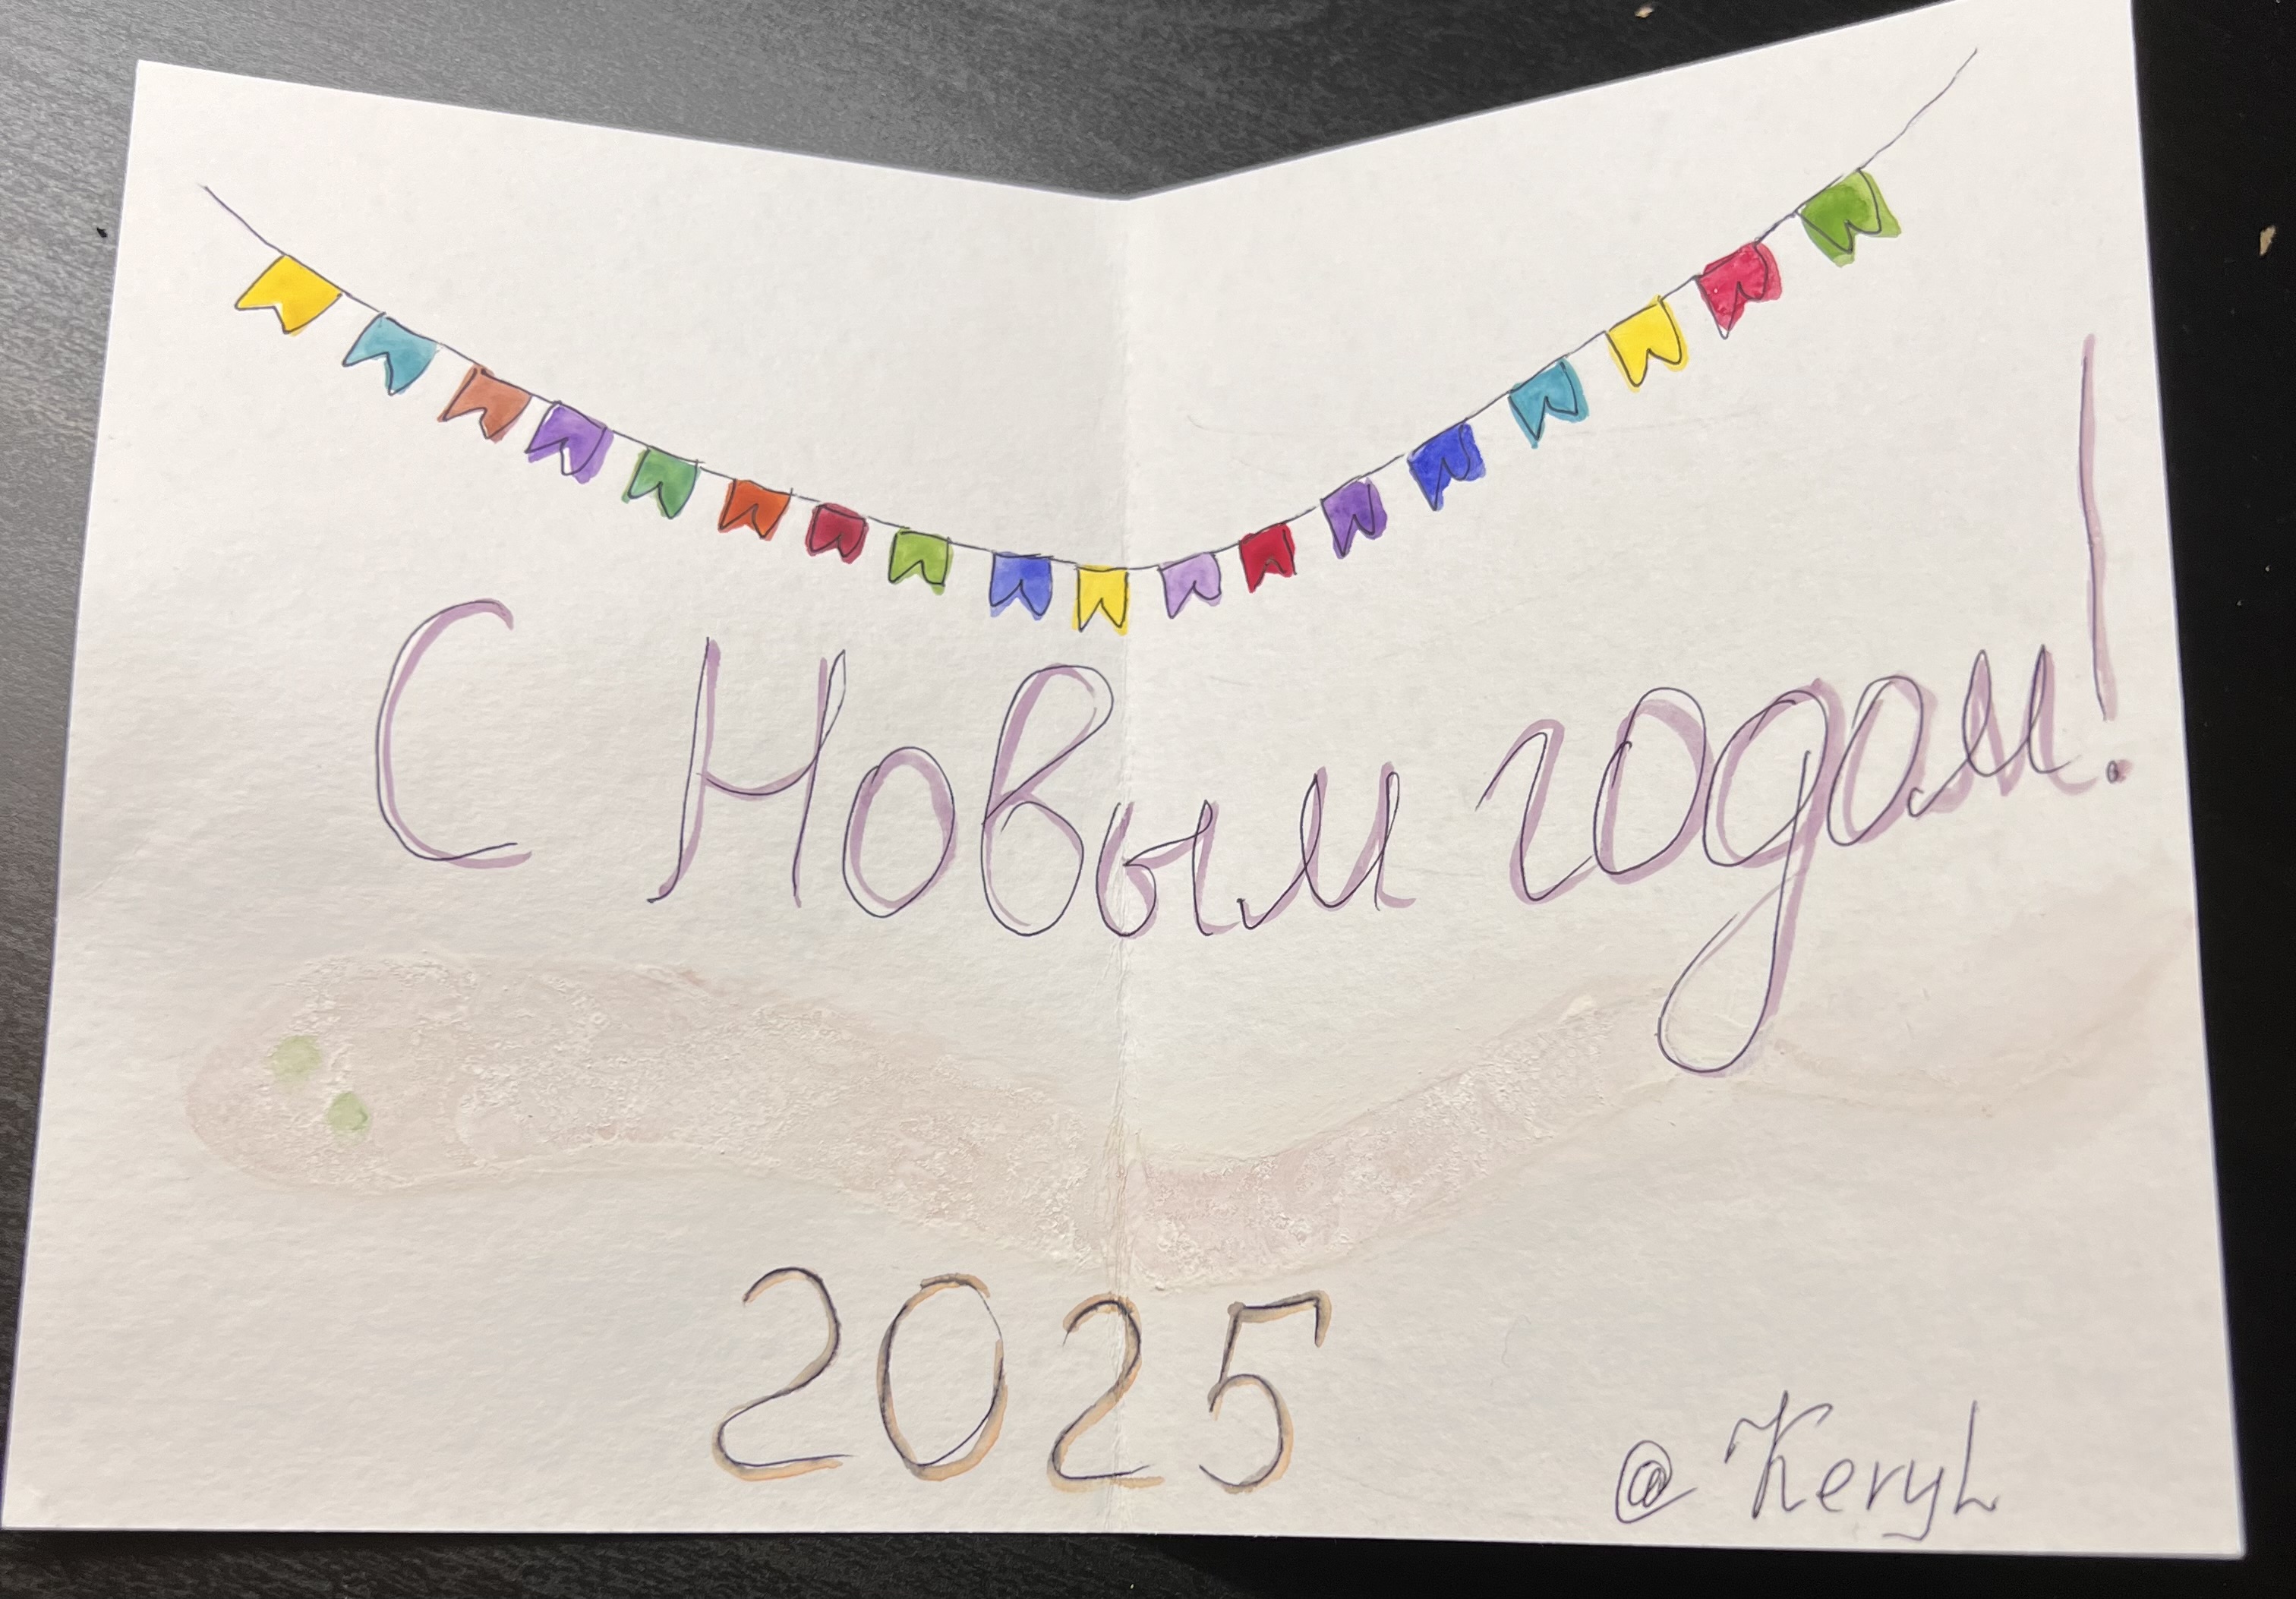 С Новым годом!
2025
@KeryL